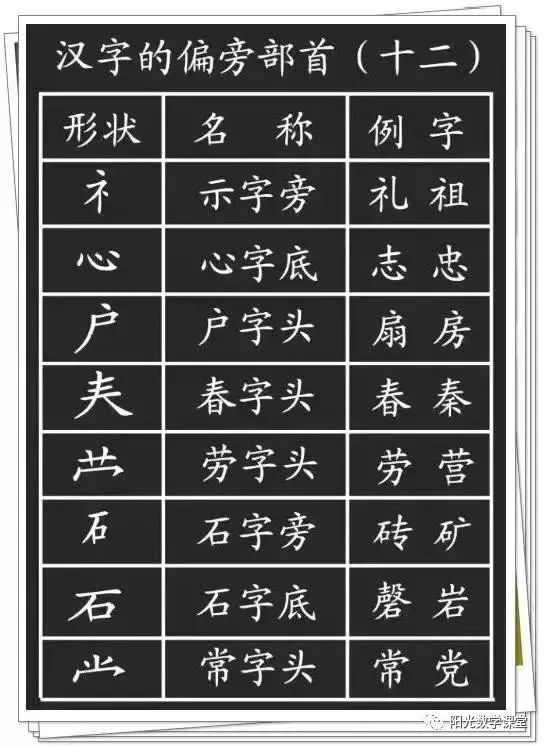 汉字的偏旁部首（十二）
形状 名 称 例 字
礻 示字旁 礼 祖
心 心字底 志 忠
户 户字头 扇 房
𡗗 春字头 春 秦
龷 劳字头 劳 营
石 石字旁 砖 矿
石 石字底 磬 岩
龸 常字头 常 党
阳光数学课堂